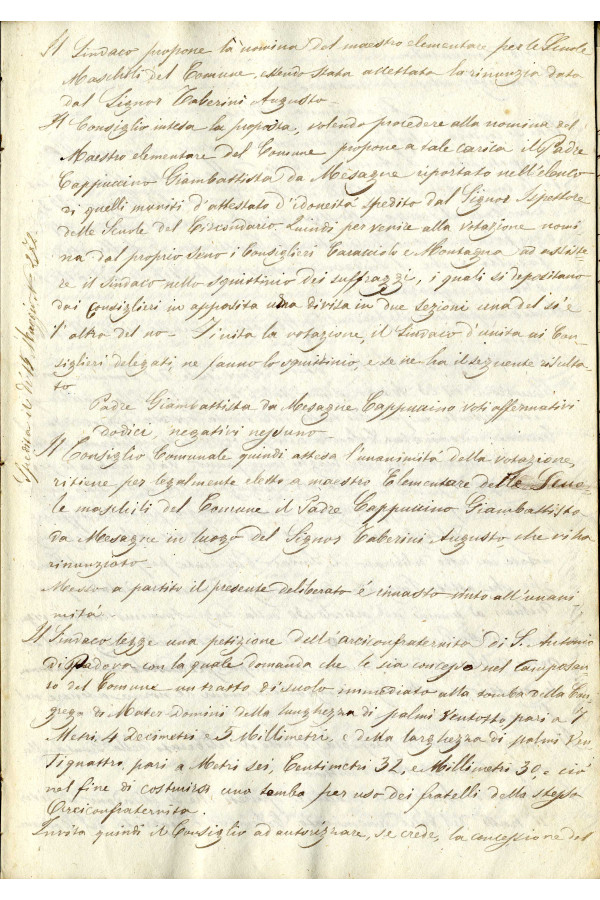 Il Sindaco propone la nomina del maestro elementare per le Scuole
Maschili del Comune, essendo stata accettata la rinunzia data
dal Signor Taberini Augusto.
Il Consiglio intesa la proposta, volendo procedere alla nomina del
Maestro elementare del Comune propone a tale carica il Padre
Cappuccino Giambattista da Mesagne riportato nell'elenco
di quelli muniti d'attestato d'idoneità spedito dal Signor Ispettore
delle Scuole del Circondario. Quindi per venire alla votazione nomi
na dal proprio seno i Consiglieri Caracciolo e Montagna ad assiste
re il Sindaco nello squittinio dei suffraggi, i quali si depositano
dai Consiglieri in apposita urna divisa in due sezioni una del sì e
l'altra del no. Finita la votazione, il Sindaco d'unita ai Con
siglieri delegati, ne fanno lo squittinio, e se ne ha il seguente risulta
to
Padre Giambattista da Mesagne Cappuccino voti affermativi
dodici, negativi nessuno.
Il Consiglio Comunale quindi attesa l'unanimità della votazione,
ritiene per legalmente eletto a maestro Elementare delle Scuo=
le maschili del Comune il Padre Cappuccino Giambattista
da Mesagne in luogo del Signor Taberini Augusto, che vi ha
rinunziato.
Messo a partito il presente deliberato è rimasto vinto all'unani
mità.
Il Sindaco legge una petizione dell'arciconfraternita di S. Antonio
di Padova con la quale domanda che le sia concesso nel Camposan
to del Comune un tratto di suolo immediato alla tomba della Con
grega di Mater Domini della lunghezza di palmi Ventotto pari a 7
Metri, 4 decimetri e 5 Millimetri, e della larghezza di palmi Ven
tiquattro, pari a Metri sei, Centimetri 32, e Millimetri 30, e ciò
nel fine di costruirsi una tomba per uso dei fratelli della stessa
Arciconfraternita.
Invita quindi il Consiglio ad autorizzare, se crede, la concessione del